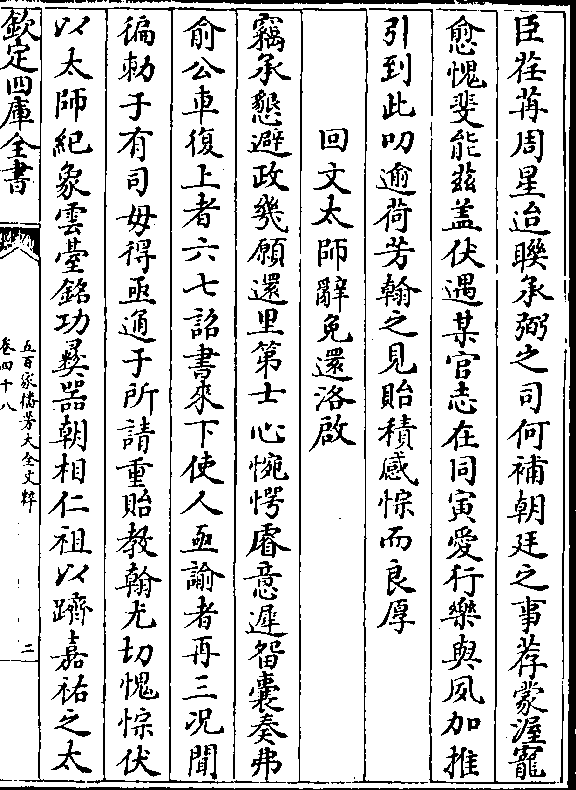 臣荏苒周星迨聨承弼之司何補朝廷之事荐蒙渥寵
愈愧斐能兹盖伏遇某官志在同寅愛行樂與夙加推
引到此叨逾荷芳翰之見貽積感悰而良厚
回文太師辭免還洛啟
竊承懇避政幾願還里第士心惋愕睿意遲留囊奏弗
俞公車復上者六七詔書來下使人亟諭者再三况聞
徧勅于有司毋得亟通于所請重貽教翰尤切愧悰伏
以太師紀象雲臺銘功彛器朝相仁祖以躋嘉祐之太
欽定四庫全書
五百家播芳大全文粹
卷四十八
二